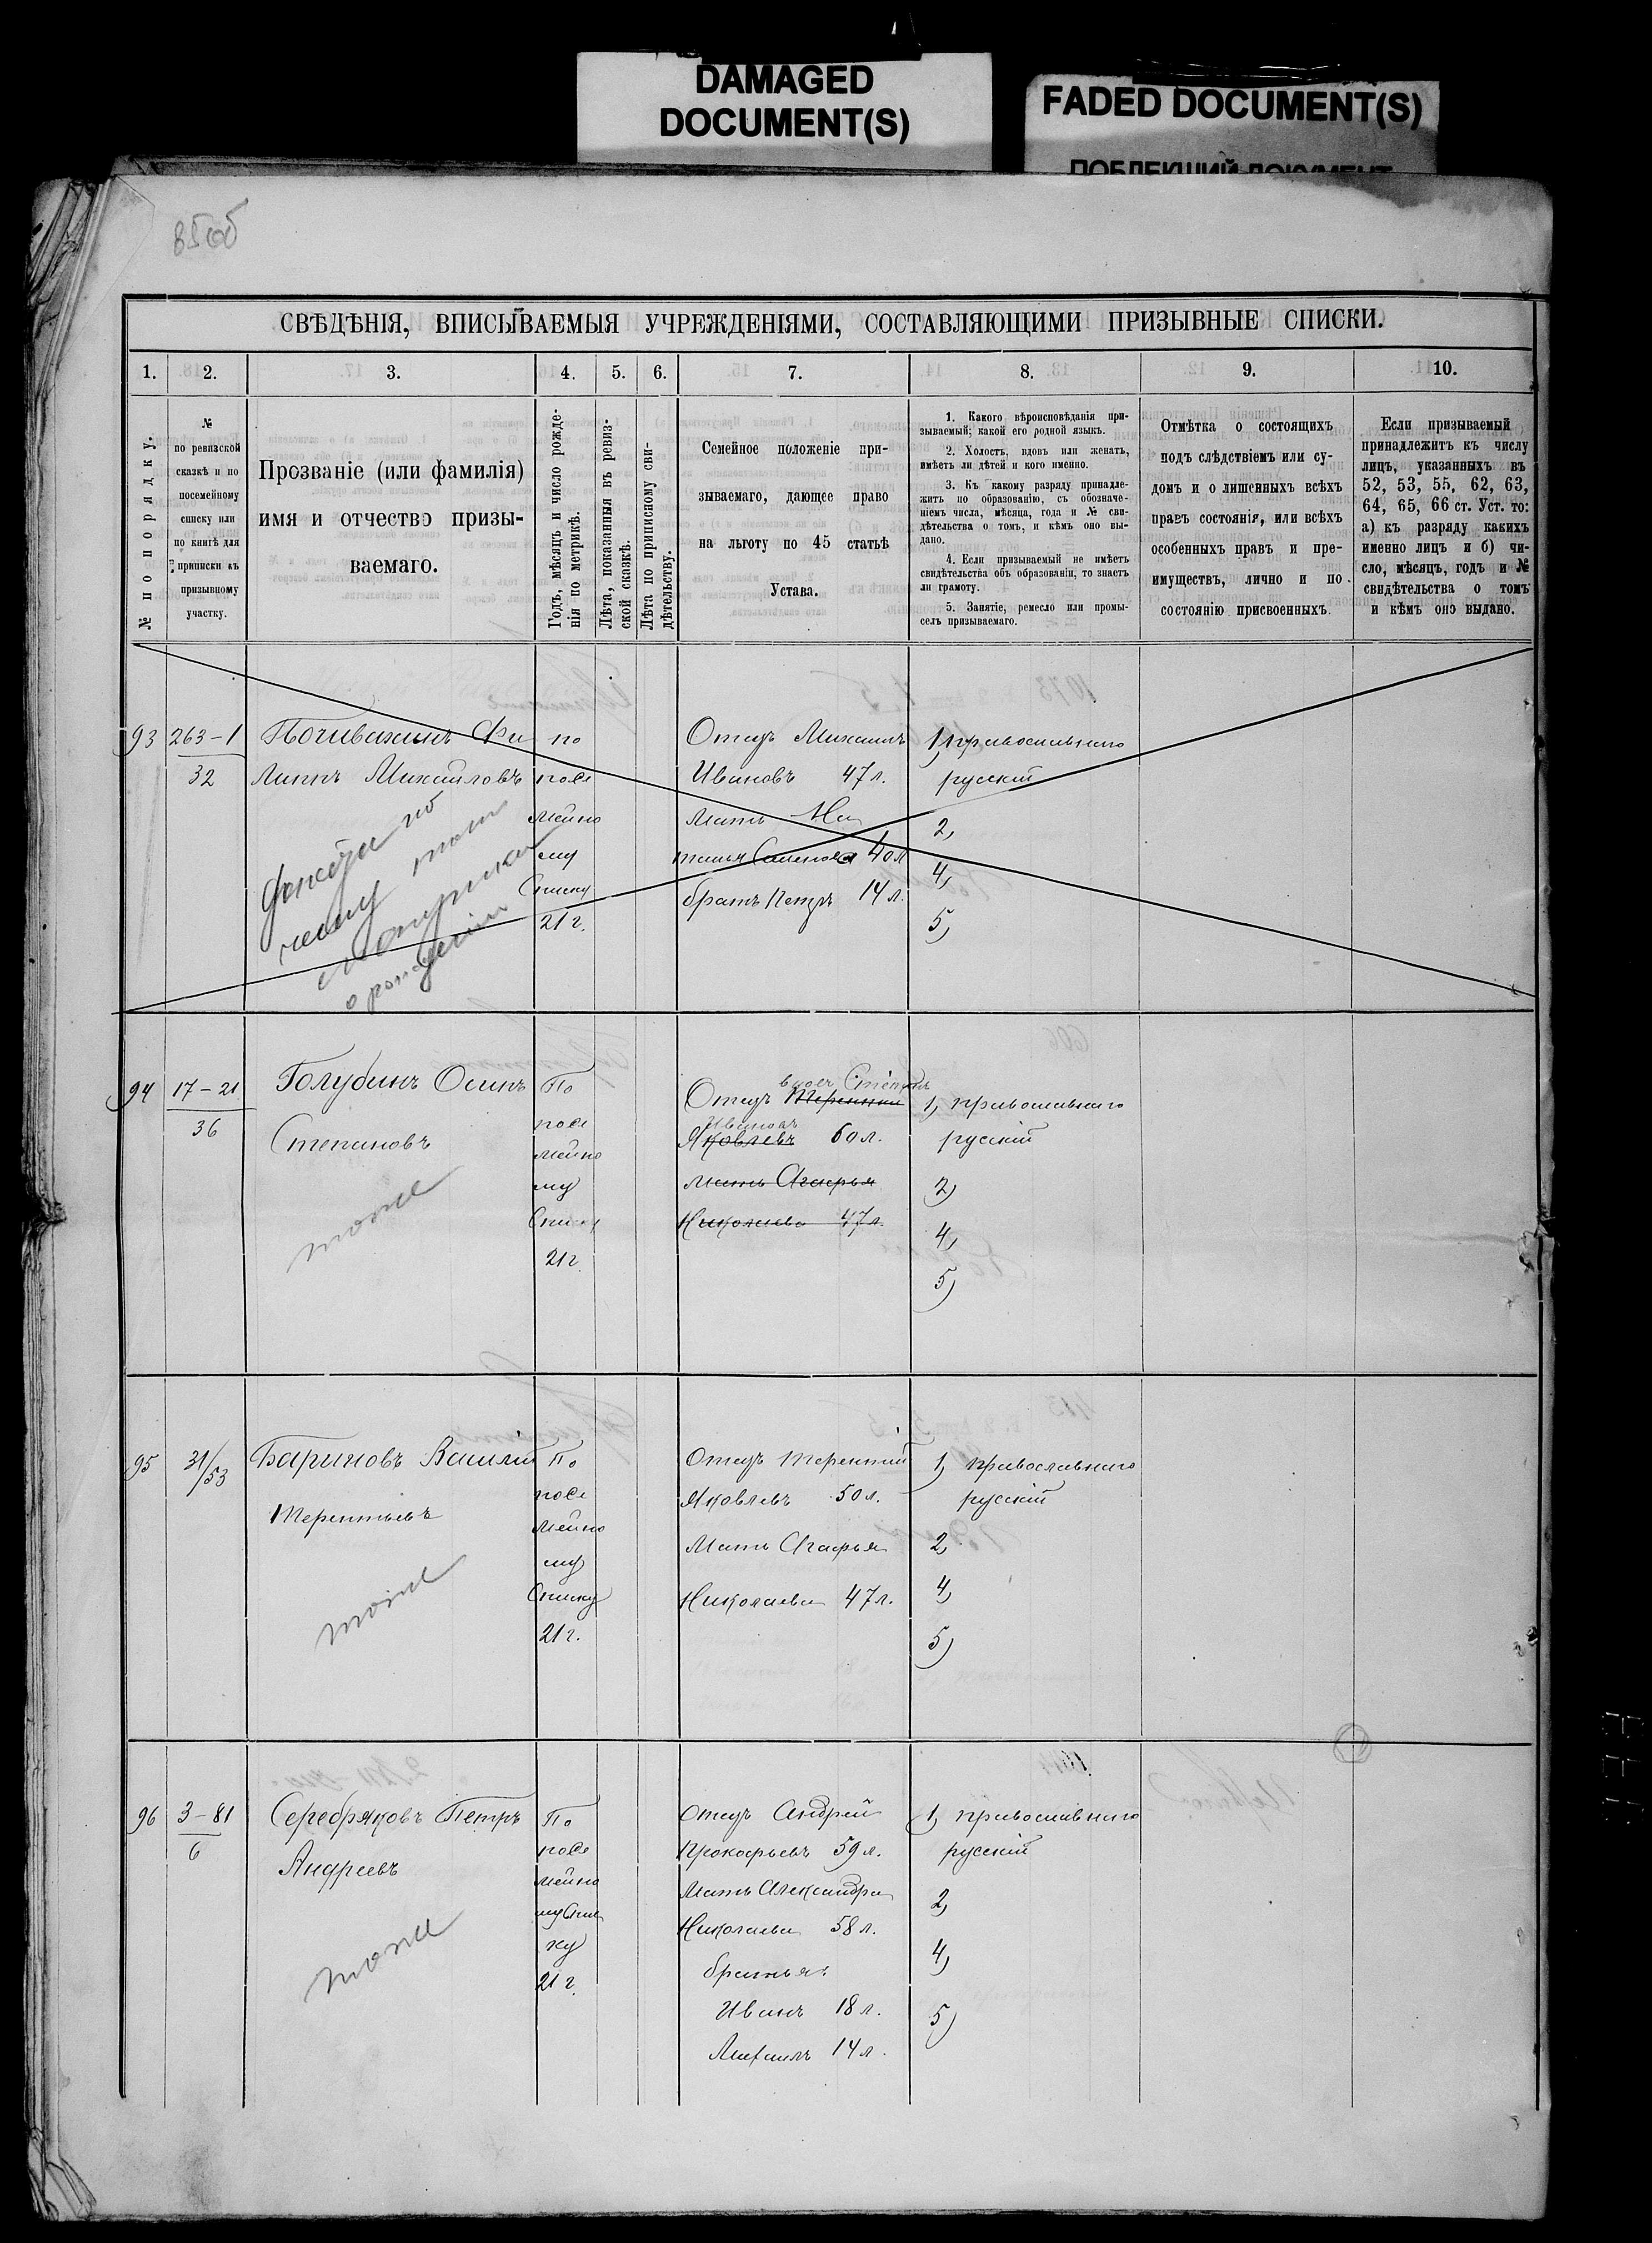 DAMAGED
DOCUMENT(S)
FADED DOCUMENT(S)
ПОБЛЕКШИЙ ДОКУМЕНТ
85об
СВѢДѢНІЯ, ВПИСЫВАЕМЫЯ УЧРЕЖДЕНІЯМИ, СОСТАВЛЯЮЩИМИ ПРИЗЫВНЫЕ СПИСКИ.
1. 2. 3. 4. 5. 6. 7. 8. 9. 10.
№ по порядку.
№
по ревизской
сказкѣ и по
посемейному
списку или
по книгѣ для
приписки къ
призывному
участку.
Прозваніе (или фамилія)
имя и отчество призы-
ваемаго.
Годъ, мѣсяцъ и число рожде-
нія по метрикѣ.
Лѣта, показанныя въ ревиз-
ской сказкѣ.
Лѣта по приписному сви-
дѣтельству.
Семейное положеніе при-
зываемаго, дающее право
на льготу по 45 статьѣ
Устава.
1. Какого вѣроисповѣданія при-
зываемый; какой его родной языкъ.
2. Холостъ, вдовъ или женатъ,
имѣетъ ли дѣтей и кого именно.
3. Къ какому разряду принадле-
житъ по образованію, съ обозначе-
ніемъ числа, мѣсяца, года и № сви-
дѣтельства о томъ, и кѣмъ оно вы-
дано.
4. Если призываемый не имѣетъ
свидѣтельства объ образованіи, то знаетъ
ли грамоту.
5. Занятіе, ремесло или промы-
селъ призываемаго.
Отмѣтка о состоящихъ
подъ слѣдствіемъ или су-
домъ и о лишенныхъ всѣхъ
правъ состоянія, или всѣхъ
особенныхъ правъ и пре-
имуществъ, лично и по
состоянію присвоенныхъ.
Если призываемый
принадлежитъ къ числу
лицъ, указанныхъ въ
52, 53, 55, 62, 63,
64, 65, 66 ст. Уст. то:
а) къ разряду какихъ
именно лицъ и б) чи-
сло, мѣсяцъ, годъ и №
свидѣтельства о томъ
и кѣмъ оно выдано.
93
263-1
32
Почивакинъ Фи
липпъ Михайловъ
метрики
о рожденіи
по
посе
мейно
му
Списку
21 г.
Отецъ Михаилъ
Ивановъ 47 л.
Мать На
талья Семенова 40 л
братъ Петръ 14 л.
1, православнаго
русскій
2,
4,
5,
94
17-21
36
Голубинъ Осипъ
Степановъ
тоже
По
посе
мейно
му
Списку
21 г.
вдовъ Степанъ
Отецъ Терентій
Ивановъ
Яковлевъ 60 л.
Мать Агафья
Николаева 47 л.
1, православнаго
русскій
2)
4,
5)
95
31/53
Бариновъ Василій
Терентьевъ
тоже
По
посе
мейно
му
Списку
21 г.
Отецъ Терентій
Яковлевъ 50 л.
Мать Агафья
Николаева 47 л.
1, православнаго
русскій
2,
4,
5)
96
3-81
6
Серебряковъ Петръ
Андреевъ
тоже
По
посе
мейно
му Спис
ку
21 г.
Отецъ Андрей
Прокофьевъ 59 л.
Мать Александра
Николаева 58 л.
братья:
Иванъ 18 л.
Михаилъ 14 л.
1, православнаго
русскій
2,
4,
5)